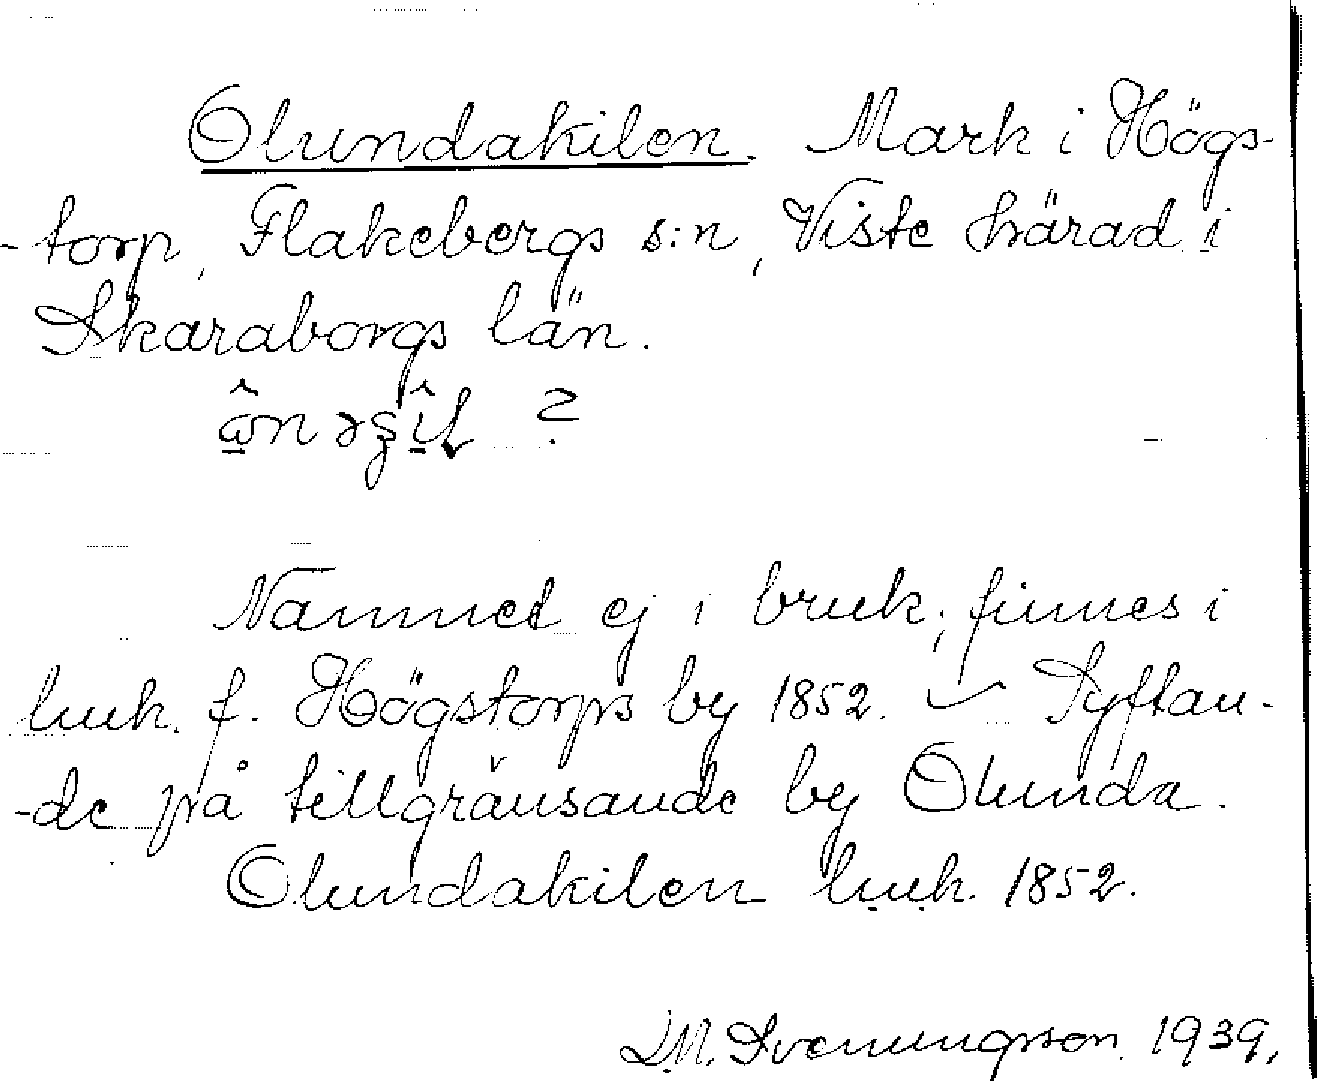 Olundakilen. Mark i Högs-
-torp, Flakebergs s:n, Viste härad i
Skaraborgs län.
?
Namnet ej i bruk; finnes i
luk. f. Högstorps by 1852. Syftan-
-de på tillgränsande by Olunda.
Olundakilen luk. 1852.
Svenungson. 1939.